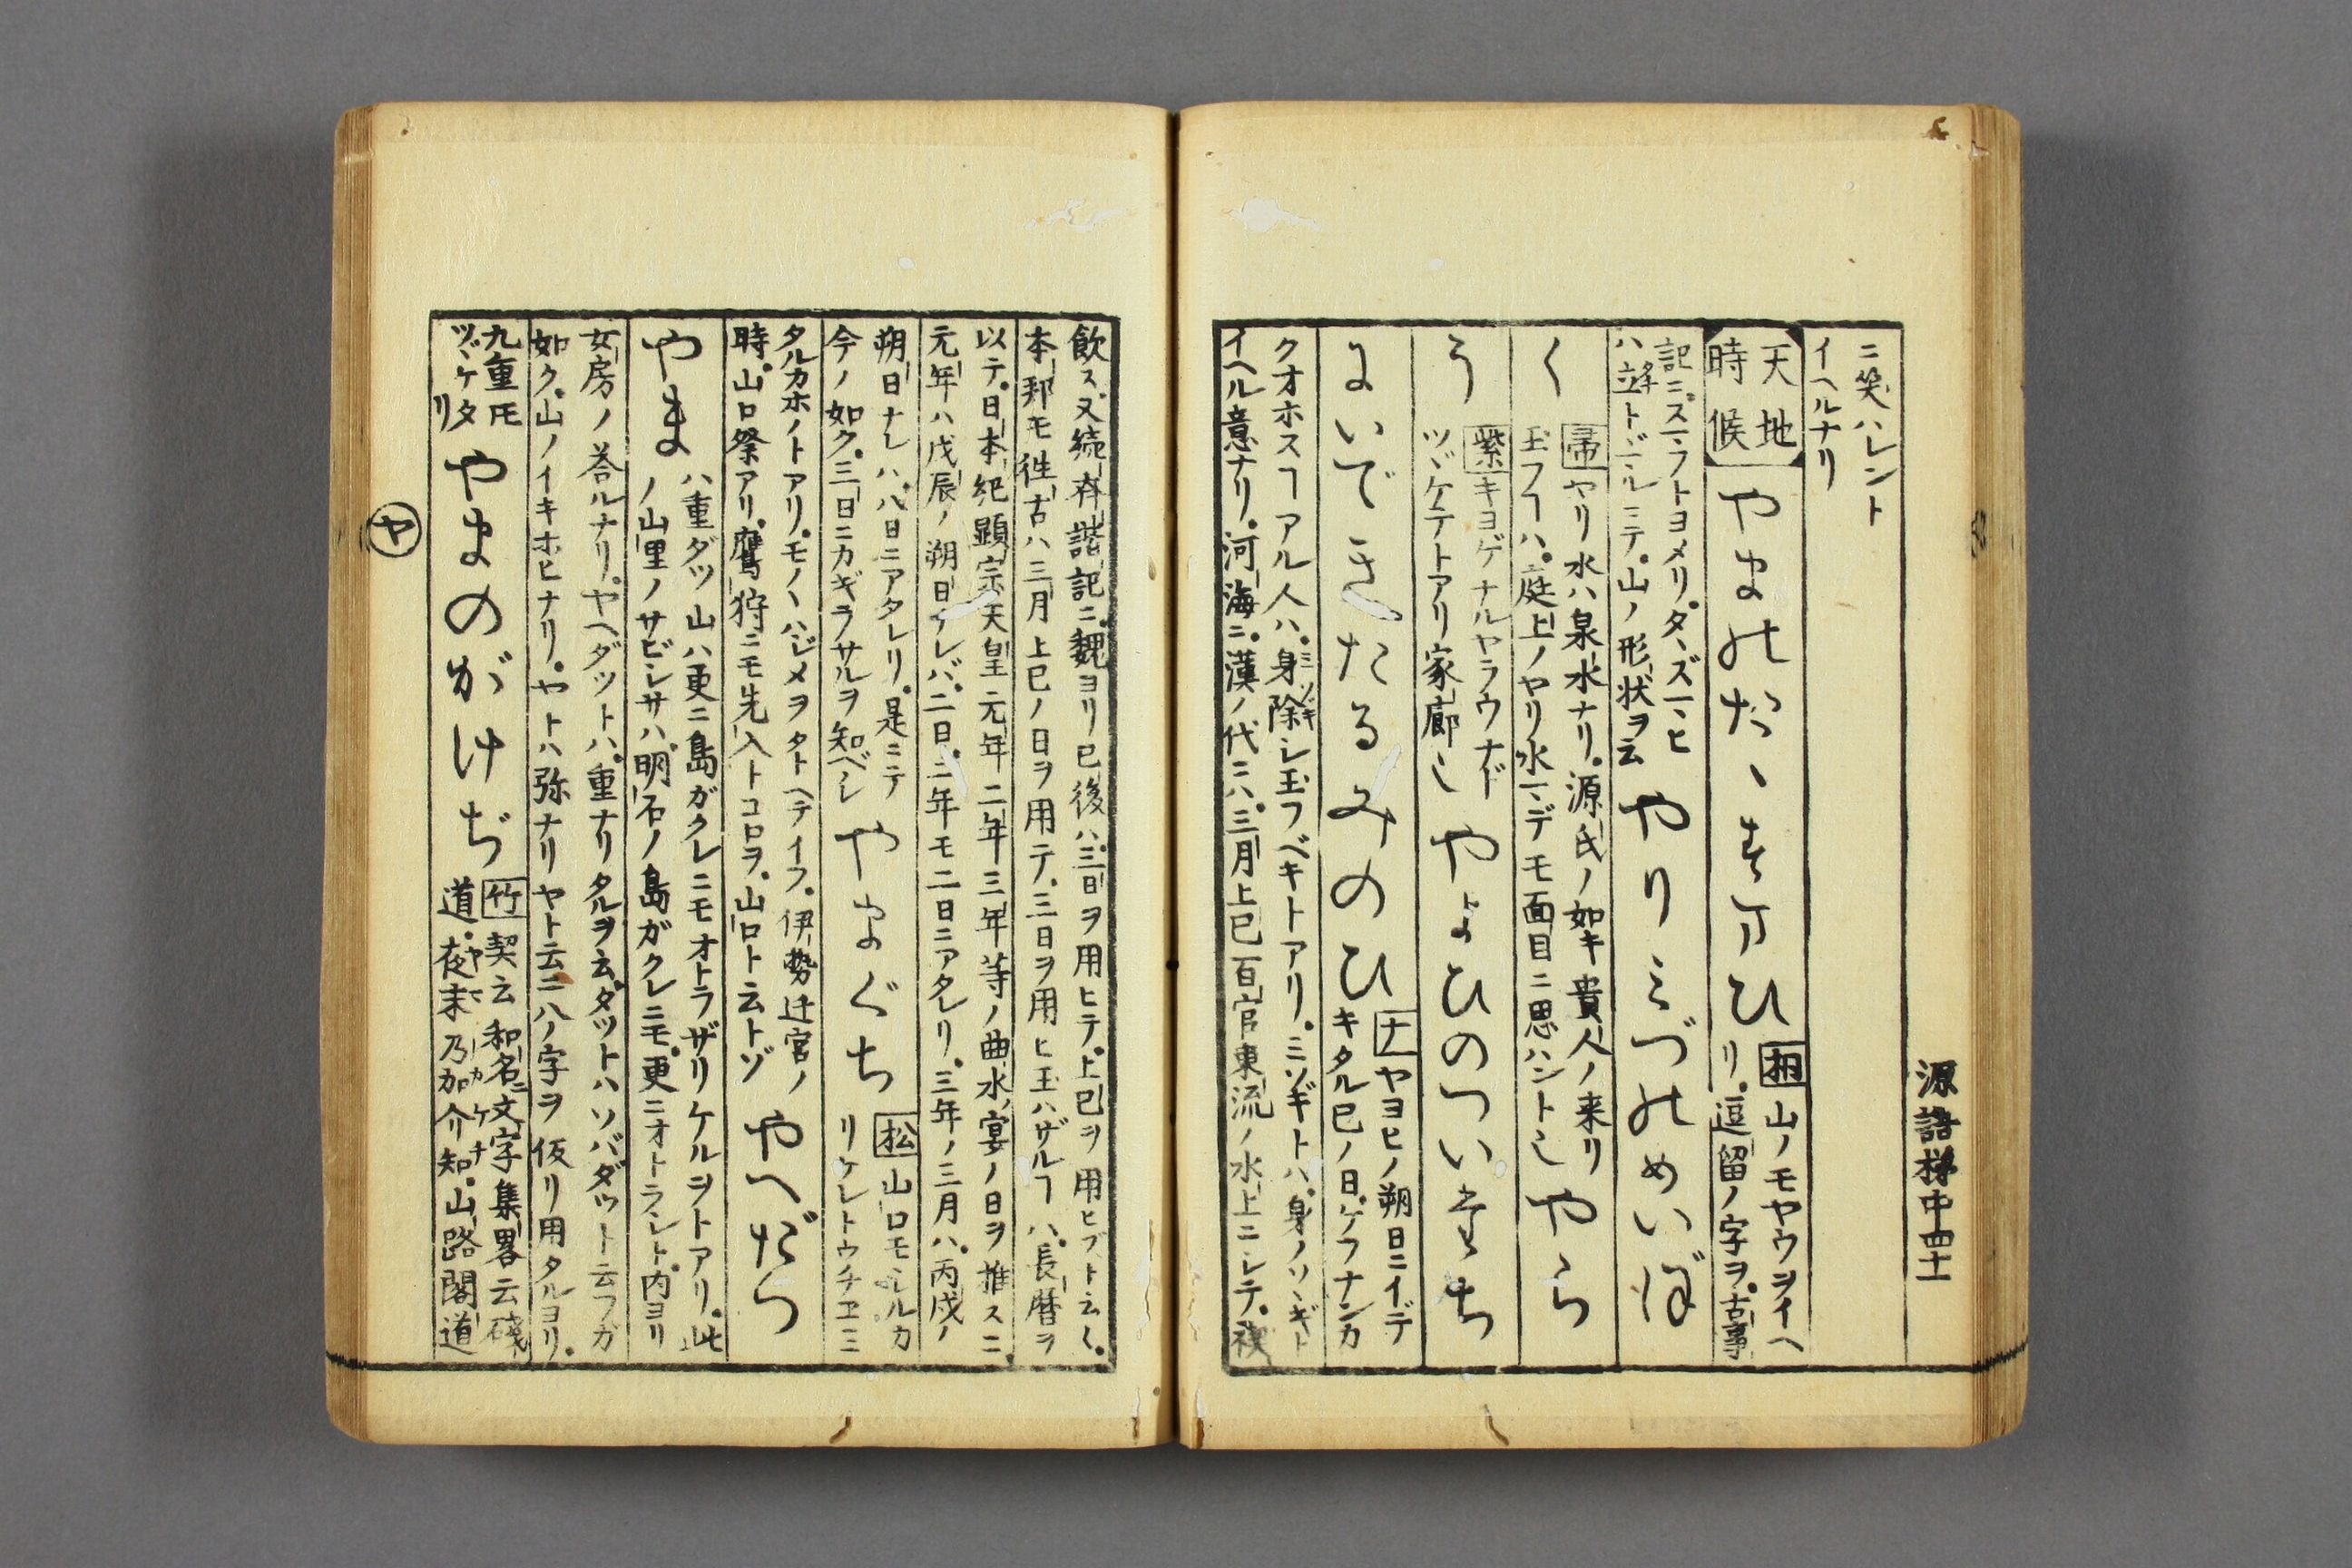 源語梯中四十
ニ笑ハレント
イヘルナリ
天地
時候
やまのたゝずまひ
桐山ノモヤウヲイヘ
リ。逗留ノ字ヲ。古事
記ニ。スマフトヨメリ。タヽズマヒ
ハ立ト。ドマルニテ。山ノ形状ヲ云
やりみづのめいぼ
く
帚ヤリ水ハ泉水ナリ。源氏ノ如キ貴人ノ来リ
玉フヿハ。庭上ノヤリ水マデモ面目ニ思ハントシ
やら
う
紫キヨゲナルヤラウナド
ツヾケテトアリ家廊シ
やよひのついたち
にいできたるみのひ
ナヤヨヒノ朔日ニイデ
キタル巳ノ日。ケフナンカ
クオホスヿアル人ハ。身除シ玉フベキトアリ。ミソギトハ。身ノソヽギト
イヘル意ナリ。河海ニ。漢ノ代ニハ。三月上巳百官東流ノ水上ニシテ。禊
飲ス。又続斉諧記ニ。魏ヨリ已後ハ。三日ヲ用ヒテ。上巳ヲ用ヒズト云々。
本邦モ往古ハ三月上巳ノ日ヲ用テ。三日ヲ用ヒ玉ハザルヿハ。長暦ヲ
以テ。日本紀顕宗天皇元年二年三年等ノ曲水ノ宴ノ日ヲ推スニ。
元年ハ戊辰ノ朔日ナレバ。二日。二年モ二日ニアタレリ。三年ノ三月ハ。丙戌ノ
朔日ナレハ。八日ニアタレリ。是ニテ
今ノ如ク。三日ニカギラサルヲ知ベシ
やまぐち
松山口モシルカ
リケレトウチヱミ
タルカホノトアリ。モノヽハジメヲタトヘテイフ。伊勢迁宮ノ
時。山口祭アリ。鷹狩ニモ先入トコロヲ。山口ト云トゾ
やへだつ
やま
八重ダツ山ハ更ニ島ガクレニモオトラザリケルヲトアリ。此
ノ山里ノサビシサハ。明石ノ島ガクレニモ。更ニオトラシト。内ヨリ
女房ノ荅ルナリ。ヤヘダツトハ。重ナリタルヲ云。ダツトハソバダツト云フガ
如ク。山ノイキホヒナリ。ヤトハ弥ナリヤト云ニ八ノ字ヲ仮リ用タルヨリ。
九重モ
ツヾケタ
リ
やまのがけぢ
竹契云和名ニ文字集畧云礀
道。夜末乃加介知。山路閣道
ヤマノカケチ
ヤ